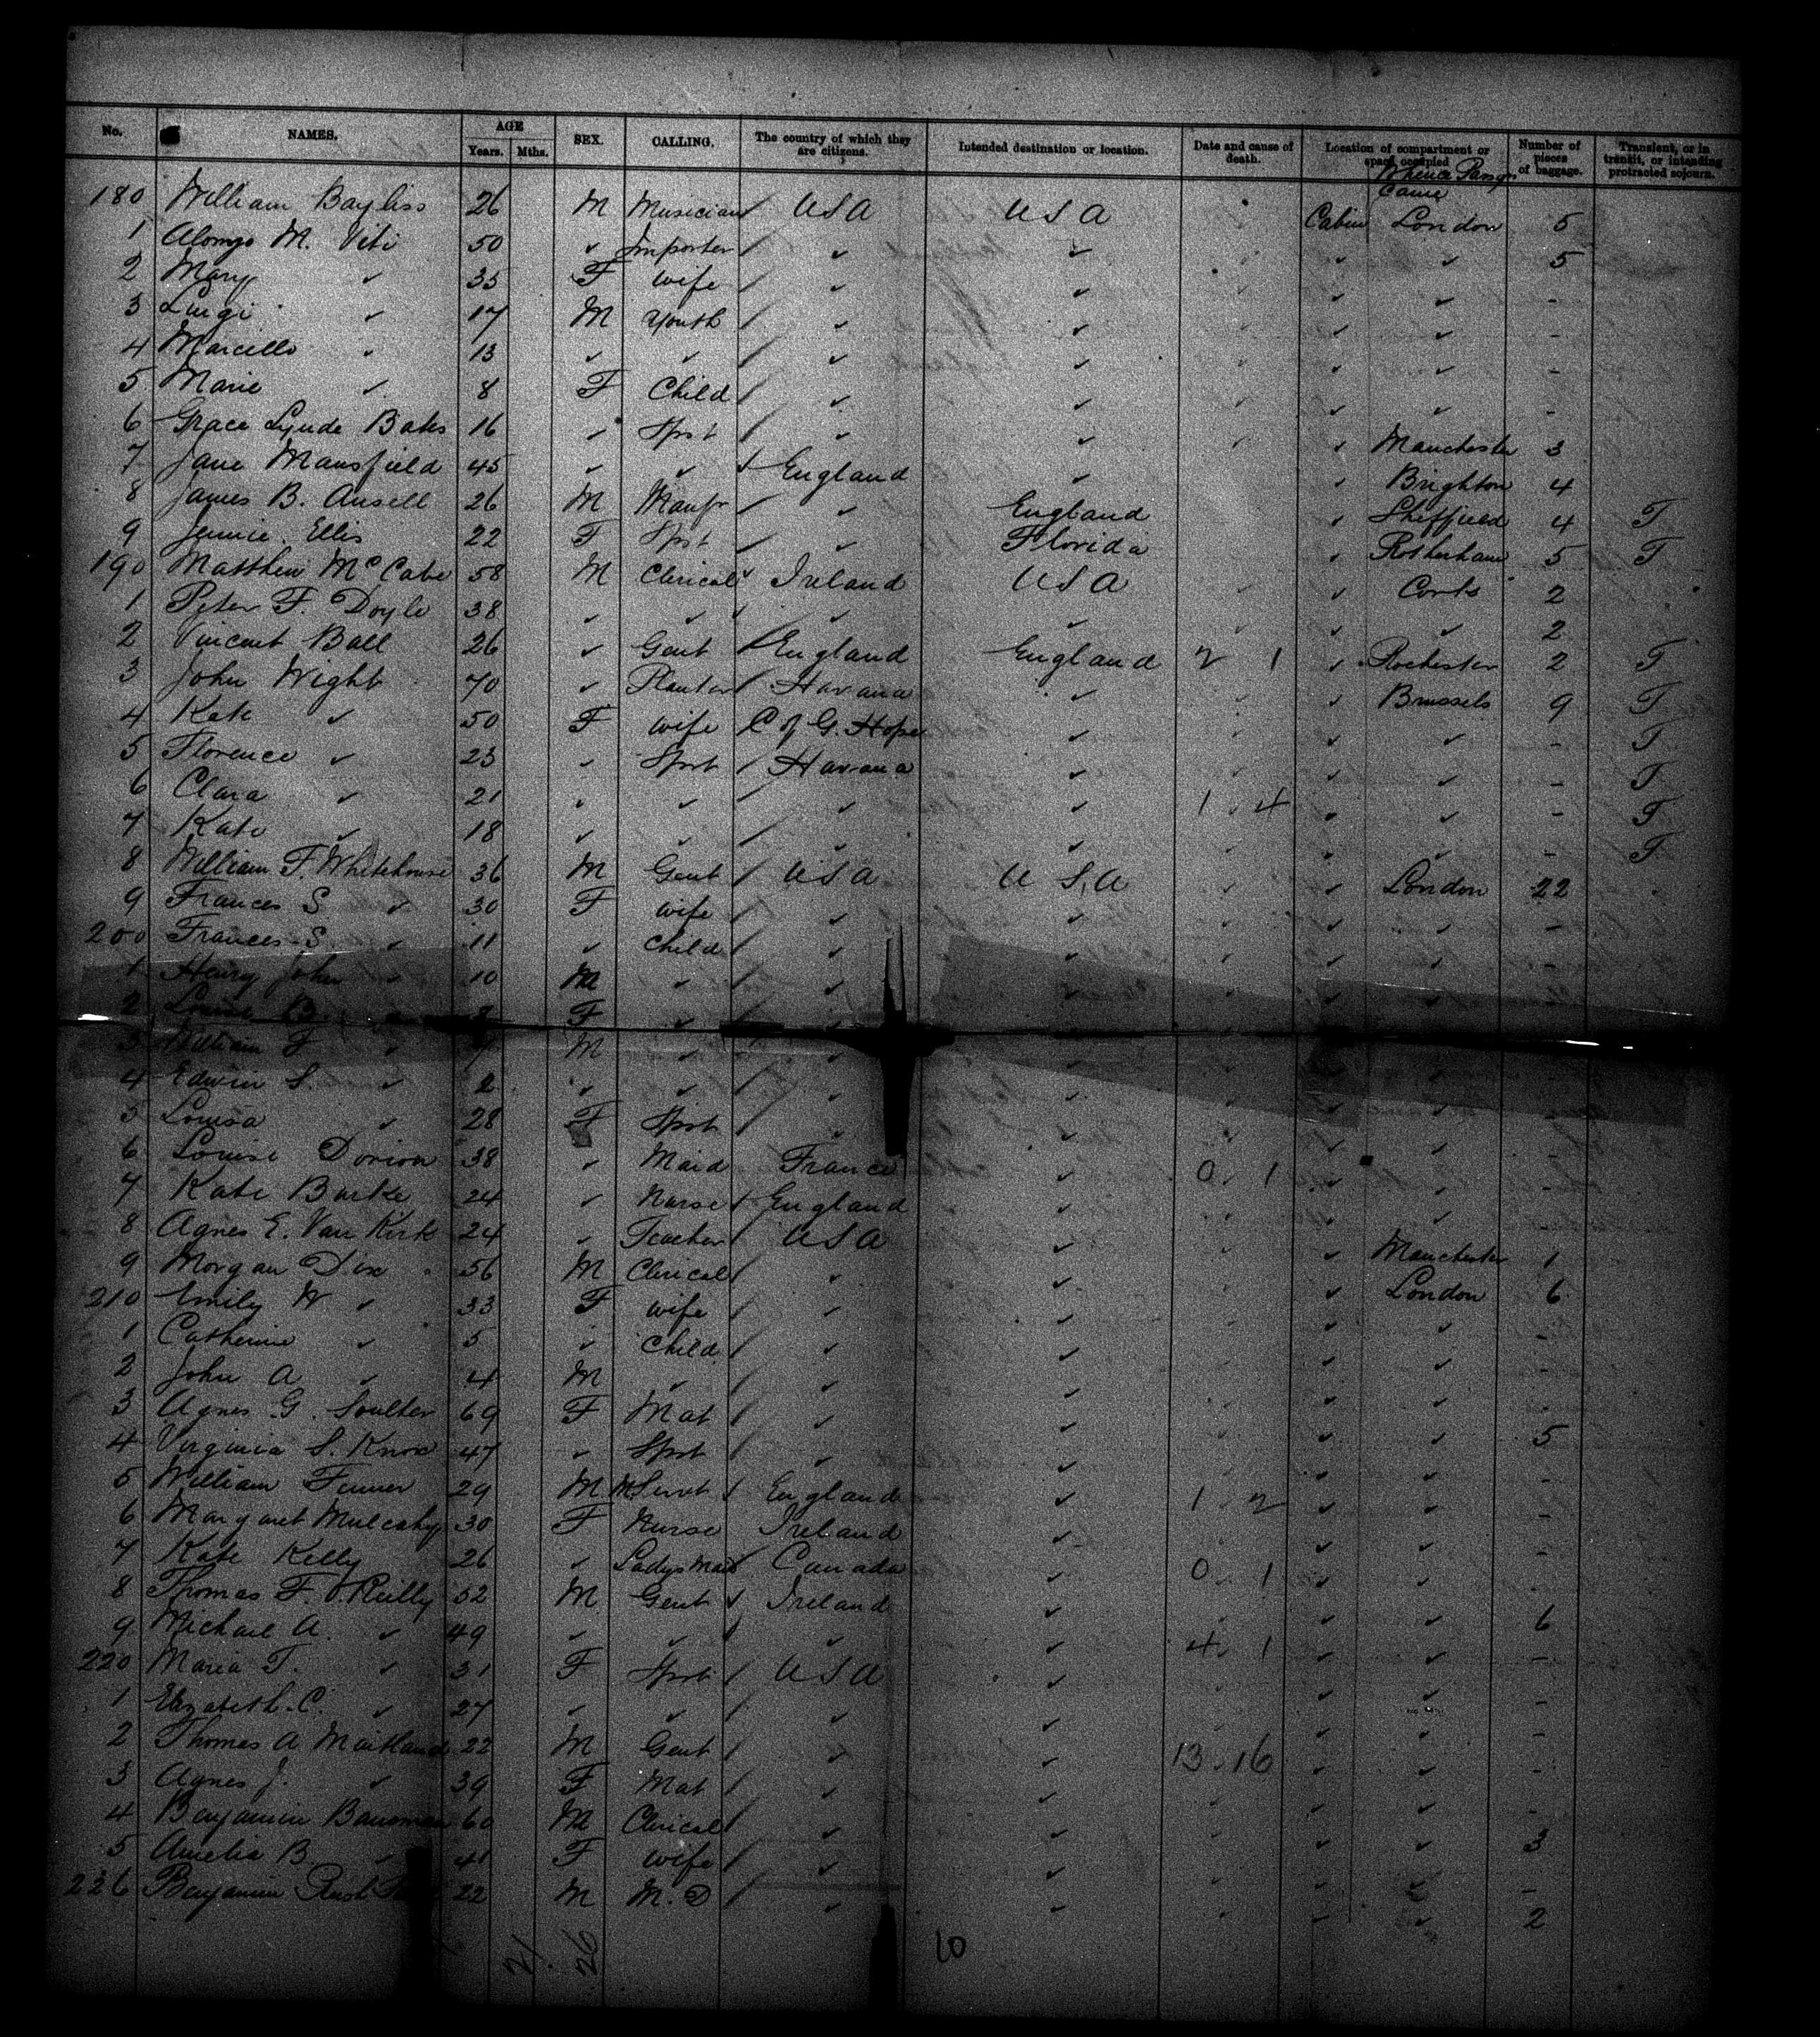 No. NAMES. AGE Years. Mths. SEX. CALLING. The country of which they are citizens. Intended destination or location. Date and cause of death. Location of compartment or space occupied Number of pieces of baggage. Transient, or in transit, or intending protracted sojourn.
Whence Passgrs Came
180 William Bayliss 26 M Musician USA USA Cabin London 5
1 Alonzo M. Viti 50 ✓ Importer ✓ ✓ ✓ ✓ 5
2 Mary ✓ 35 F wife ✓ ✓ ✓ ✓ -
3 Luigi ✓ 17 M Youth ✓ ✓ ✓ ✓ -
4 Marcello ✓ 13 ✓ ✓ ✓ ✓ ✓ ✓ -
5 Marie ✓ 8 F Child ✓ ✓ ✓ ✓ -
6 Grace Lynde Bates 16 ✓ Spst ✓ ✓ ✓ Manchester 3
7 Jane Mansfield 45 ✓ ✓ England ✓ ✓ Brighton 4
8 James B. Ansell 26 M Manfr ✓ England ✓ Sheffield 4 T
9 Jennie Ellis 22 F Spst ✓ Florida ✓ Rotherham 5 T
190 Matthew McCabe 58 M Clerical Ireland USA ✓ Cork 2
1 Peter F. Doyle 38 ✓ ✓ ✓ ✓ ✓ ✓ 2
2 Vincent Ball 26 ✓ Gent England England 2 1 ✓ Rochester 2 T
3 John Wright 70 ✓ Planter Havana ✓ ✓ Brussels 9 T
4 Kate ✓ 50 F wife C of G. Hope ✓ ✓ ✓ - T
5 Florence ✓ 23 ✓ Spst Havana ✓ ✓ ✓ - T
6 Clara ✓ 21 ✓ ✓ ✓ ✓ 1 . 4 ✓ ✓ - T
7 Kate ✓ 18 ✓ ✓ ✓ ✓ ✓ ✓ - T
8 William F. Whitehouse 36 M Gent USA USA ✓ London 22
9 Frances S. ✓ 30 F wife ✓ ✓ ✓ ✓ -
200 Frances S. ✓ 11 ✓ Child ✓ ✓ ✓ ✓ -
1 Henry John ✓ 10 M ✓ ✓ ✓ ✓ ✓ -
2 Louise B. ✓ F ✓ ✓ ✓ ✓ ✓ -
3 William F ✓ M ✓ ✓ ✓ ✓ ✓ -
4 Edwin S. ✓ 2 ✓ ✓ ✓ ✓ ✓ ✓ -
5 Louisa ✓ 28 F Spst ✓ ✓ ✓ ✓ -
6 Louise Dorion 38 ✓ Maid France ✓ 0 . 1 ✓ ✓ -
7 Kate Burke 24 ✓ Nurse England ✓ ✓ ✓ -
8 Agnes E. Van Kirk 24 ✓ Teacher USA ✓ ✓ Manchester 1
9 Morgan Dix 56 M Clerical ✓ ✓ ✓ London 6
210 Emily W ✓ 33 F wife ✓ ✓ ✓ ✓ -
1 Catherine ✓ 5 ✓ Child ✓ ✓ ✓ ✓ -
2 John A ✓ 4 M ✓ ✓ ✓ ✓ ✓ -
3 Agnes G. Soulter 69 F Mat ✓ ✓ ✓ ✓ 5
4 Virginia S. Knox 47 ✓ Spst ✓ ✓ ✓ ✓ -
5 William Finner 29 M M Servt England ✓ 1 . 2 ✓ ✓ -
6 Margaret Mulcahy 30 F Nurse Ireland ✓ ✓ ✓ -
7 Kate Kelly 26 ✓ Ladys Maid Canada ✓ 0 . 1 ✓ ✓ -
8 Thomas F. O'Reilly 52 M Gent Ireland ✓ ✓ ✓ 6
9 Michael A. ✓ 49 ✓ ✓ ✓ ✓ 4 . 1 ✓ ✓ -
220 Maria T. ✓ 31 F Spst USA ✓ ✓ ✓ -
1 Elizabeth C. ✓ 27 ✓ ✓ ✓ ✓ ✓ ✓ -
2 Thomas A Maitland 22 M Gent ✓ ✓ 13 . 16 ✓ ✓ -
3 Agnes J. ✓ 39 F Mat ✓ ✓ ✓ ✓ -
4 Benjamin 60 M Clerical ✓ ✓ ✓ ✓ 3
5 Amelia B ✓ 41 F wife ✓ ✓ ✓ ✓ -
226 Benjamin Rush 22 M M.D ✓ ✓ ✓ ✓ 2
21 . 26 10